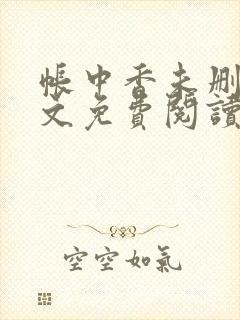 帳中香未刪
文免費閱讀
空空如氣